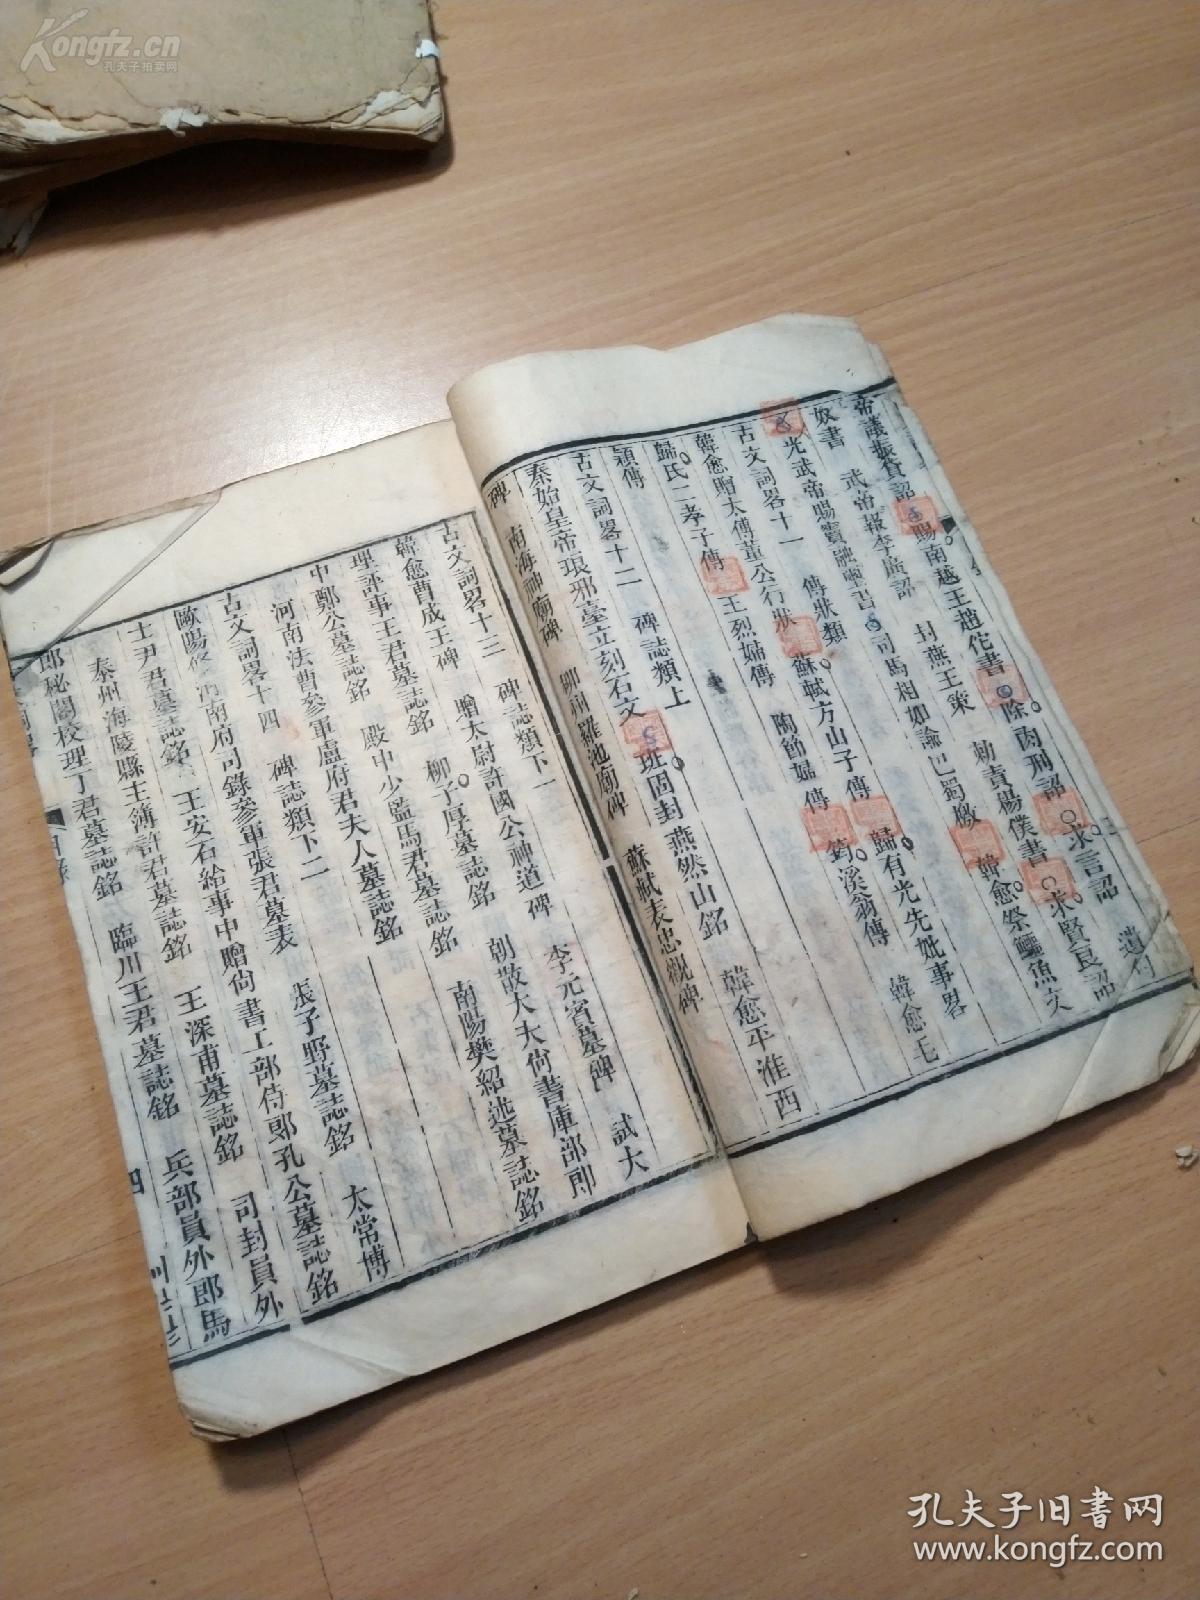 帝議振貸詔 賜南越王趙佗書 除肉刑詔 求言詔 遺匈
奴書 武帝報李廣詔 封燕王策 勑責楊僕書 求賢良詔
光武帝賜竇融璽書 司馬相如諭巴蜀檄 韓愈祭鱷魚文
古文詞畧十一 傳狀類
韓愈贈太傅董公行狀 蘇軾方山子傳 歸有光先妣事畧 韓愈毛
穎傳
歸氏二孝子傳 王烈婦傳 陶節婦傳 筠溪翁傳
古文詞畧十二 碑誌類上
秦始皇帝琅邪臺立刻石文 班固封燕然山銘 韓愈平淮西
碑 南海神廟碑 柳州羅池廟碑 蘇軾表忠觀碑
古文詞畧十三 碑誌類下一
韓愈曹成王碑 贈太尉許國公神道碑 李元賓墓碑 試大
理評事王君墓誌銘 柳子厚墓誌銘 朝散大夫尚書庫部郎
中鄭公墓誌銘 殿中少監馬君墓誌銘 南陽樊紹述墓誌銘
河南法曹參軍盧府君夫人墓誌銘
古文詞畧十四 碑誌類下二
歐陽修河南府司錄參軍張君墓表 張子野墓誌銘 太常博
士尹君墓誌銘 王安石給事中贈尚書工部侍郎孔公墓誌銘
泰州海陵縣主簿許君墓誌銘 王深甫墓誌銘 司封員外
郎秘閣校理丁君墓誌銘 臨川王君墓誌銘 兵部員外郎馬
目錄
四
Kongfz.cn
孔夫子拍卖网
孔夫子旧书网
www.kongfz.com